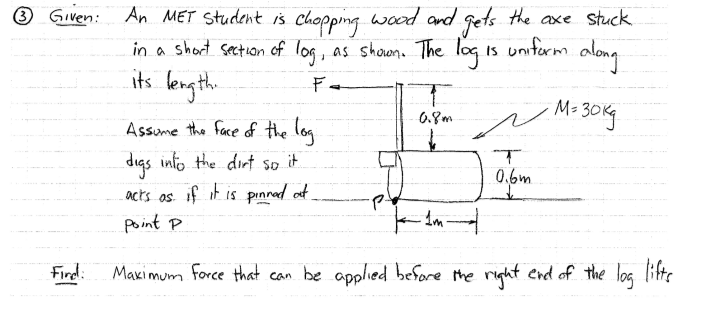 ③ Given: An MET student is chopping wood and gets the axe stuck
in a short section of log, as shown. The log is uniform along
its length.
F
0.8m
M=30Kg
Assume the face of the log
digs into the dirt so it
acts as if it is pinned at
point P
P
0.6m
1m
Find: Maximum force that can be applied before the right end of the log lifts